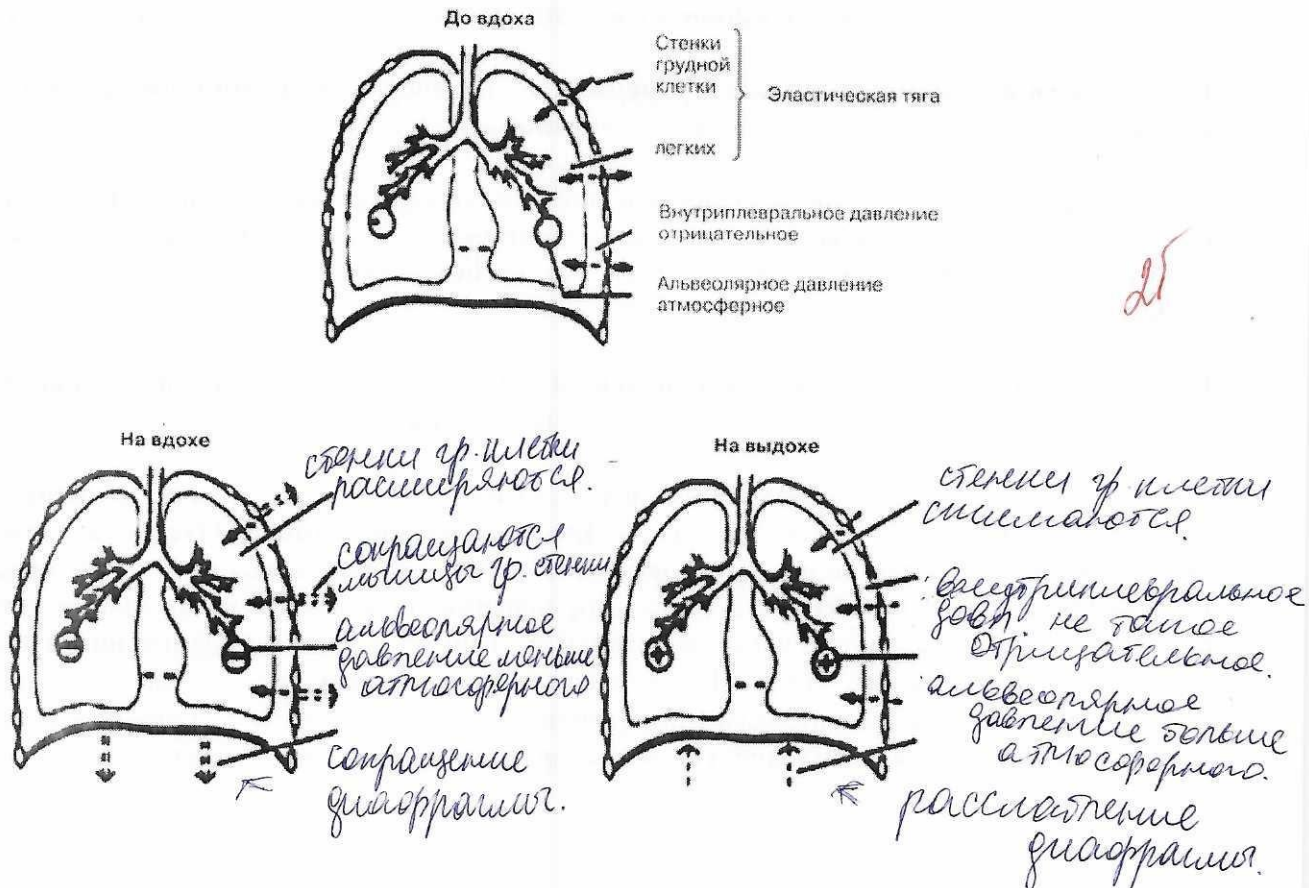 До вдоха
Стенки
грудной
клетки
Эластическая тяга
легких
Внутриплевральное давление
отрицательное
Альвеолярное давление
атмосферное
2б
На вдохе
стенки гр. клетки
расширяются.
сокращаются
мышцы гр. стенки
альвеолярное
давление меньше
атмосферного
сокращение
диафрагмы.
На выдохе
стенки гр клетки
сжимаются.
внутриплевральное
давл не такое
отрицательное.
альвеолярное
давление больше
атмосферного.
расслабление
диафрагмы.